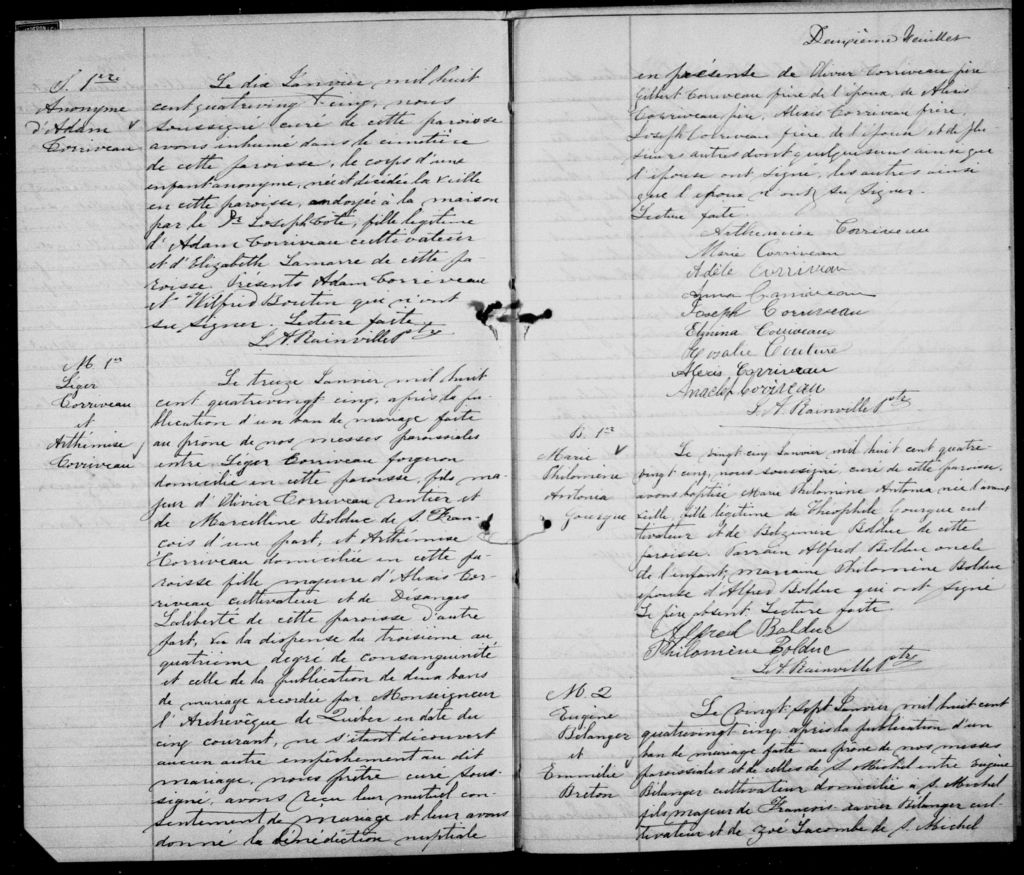 S. 1re
Anonyme
d'Adam
Corriveau
Le dix Janvier, mil huit
cent quatrevingt cinq, nous
soussigné curé de cette paroisse
avons inhumé dans le cimetière
de cette paroisse, le corps d'une
enfant anonyme, née et décédée la veille
en cette paroisse, ondoyée à la maison
par le Dr Joseph Coté, fille légitime
d'Adam Corriveau cultivateur
et d'Elizabeth Lamarre de cette pa-
roisse. Présents Adam Corriveau
et Wilfred Boutin qui n'ont
su signer. Lecture faite
L. A. Rainville Ptre
M. 1er
Léger
Corriveau
et
Arthémise
Corriveau
Le treize Janvier mil huit
cent quatrevingt cinq, après la pu-
blication d'un ban de mariage faite
au prône de nos messes paroissiales
entre Léger Corriveau forgeron
domicilié en cette paroisse, fils ma-
jeur d'Olivier Corriveau rentier et
de Marcelline Bolduc de S. Fran-
cois d'une part, et Arthémise
Corriveau domiciliée en cette pa-
roisse fille majeure d'Alexis Cor-
riveau cultivateur et de Désanges
Laliberté de cette paroisse d'autre
part, vu la dispense du troisième au
quatrième degré de consanguinité
et celle de la publication de deux bans
de mariage accordée par Monseigneur
l'Archevêque de Québec en date du
cinq courant, ne s'étant découvert
aucun autre empêchement au dit
mariage, nous prêtre curé sous-
signé, avons reçu leur mutuel con-
sentement de mariage et leur avons
donné la bénédiction nuptiale
Deuxième feuillet
en présence de Olivier Corriveau père
Gilbert Corriveau frère de l'époux, de Alexis
Corriveau père, Alexis Corriveau frère,
Joseph Corriveau frère de l'épouse et de plu-
sieurs autres dont quelques uns ainsi que
l'épouse ont signé, les autres ainsi
que l'époux n'ont su signer.
Lecture faite
Arthemise Corriveau
Marie Corriveau
Adèle Corriveau
Anna Corriveau
Joseph Corriveau
Elmina Corriveau
Rosalie Couture
Alexis Corriveau
Anaclet Corriveau
L. A. Rainville Ptre
B. 1re
Marie
Philomène
Antonia
Gourgue
Le vingt cinq Janvier mil huit cent quatre-
vingt cinq, nous soussigné, curé de cette paroisse,
avons baptisé Marie Philomène Antonia née l'avant
veille, fille légitime de Théophile Gourgue cul
tivateur et de Belzemire Bolduc de cette
paroisse. Parrain Alfred Bolduc oncle
de l'enfant, marraine Philomène Bolduc
épouse d'Alfred Bolduc qui ont signé
Le père absent. Lecture faite
Alfred Bolduc
Philomène Bolduc
L. A. Rainville Ptre
M. 2
Eugène
Bélanger
et
Emmilie
Breton
Le vingt sept Janvier mil huit cent
quatrevingt cinq, après la publication d'un
ban de mariage faite au prône de nos messes
paroissiales et de celles de S. Michel entre Eugène
Bélanger cultivateur domicilié à S. Michel
fils majeur de François-Xavier Bélanger cul-
tivateur et de Zoé Lacombe de S. Michel